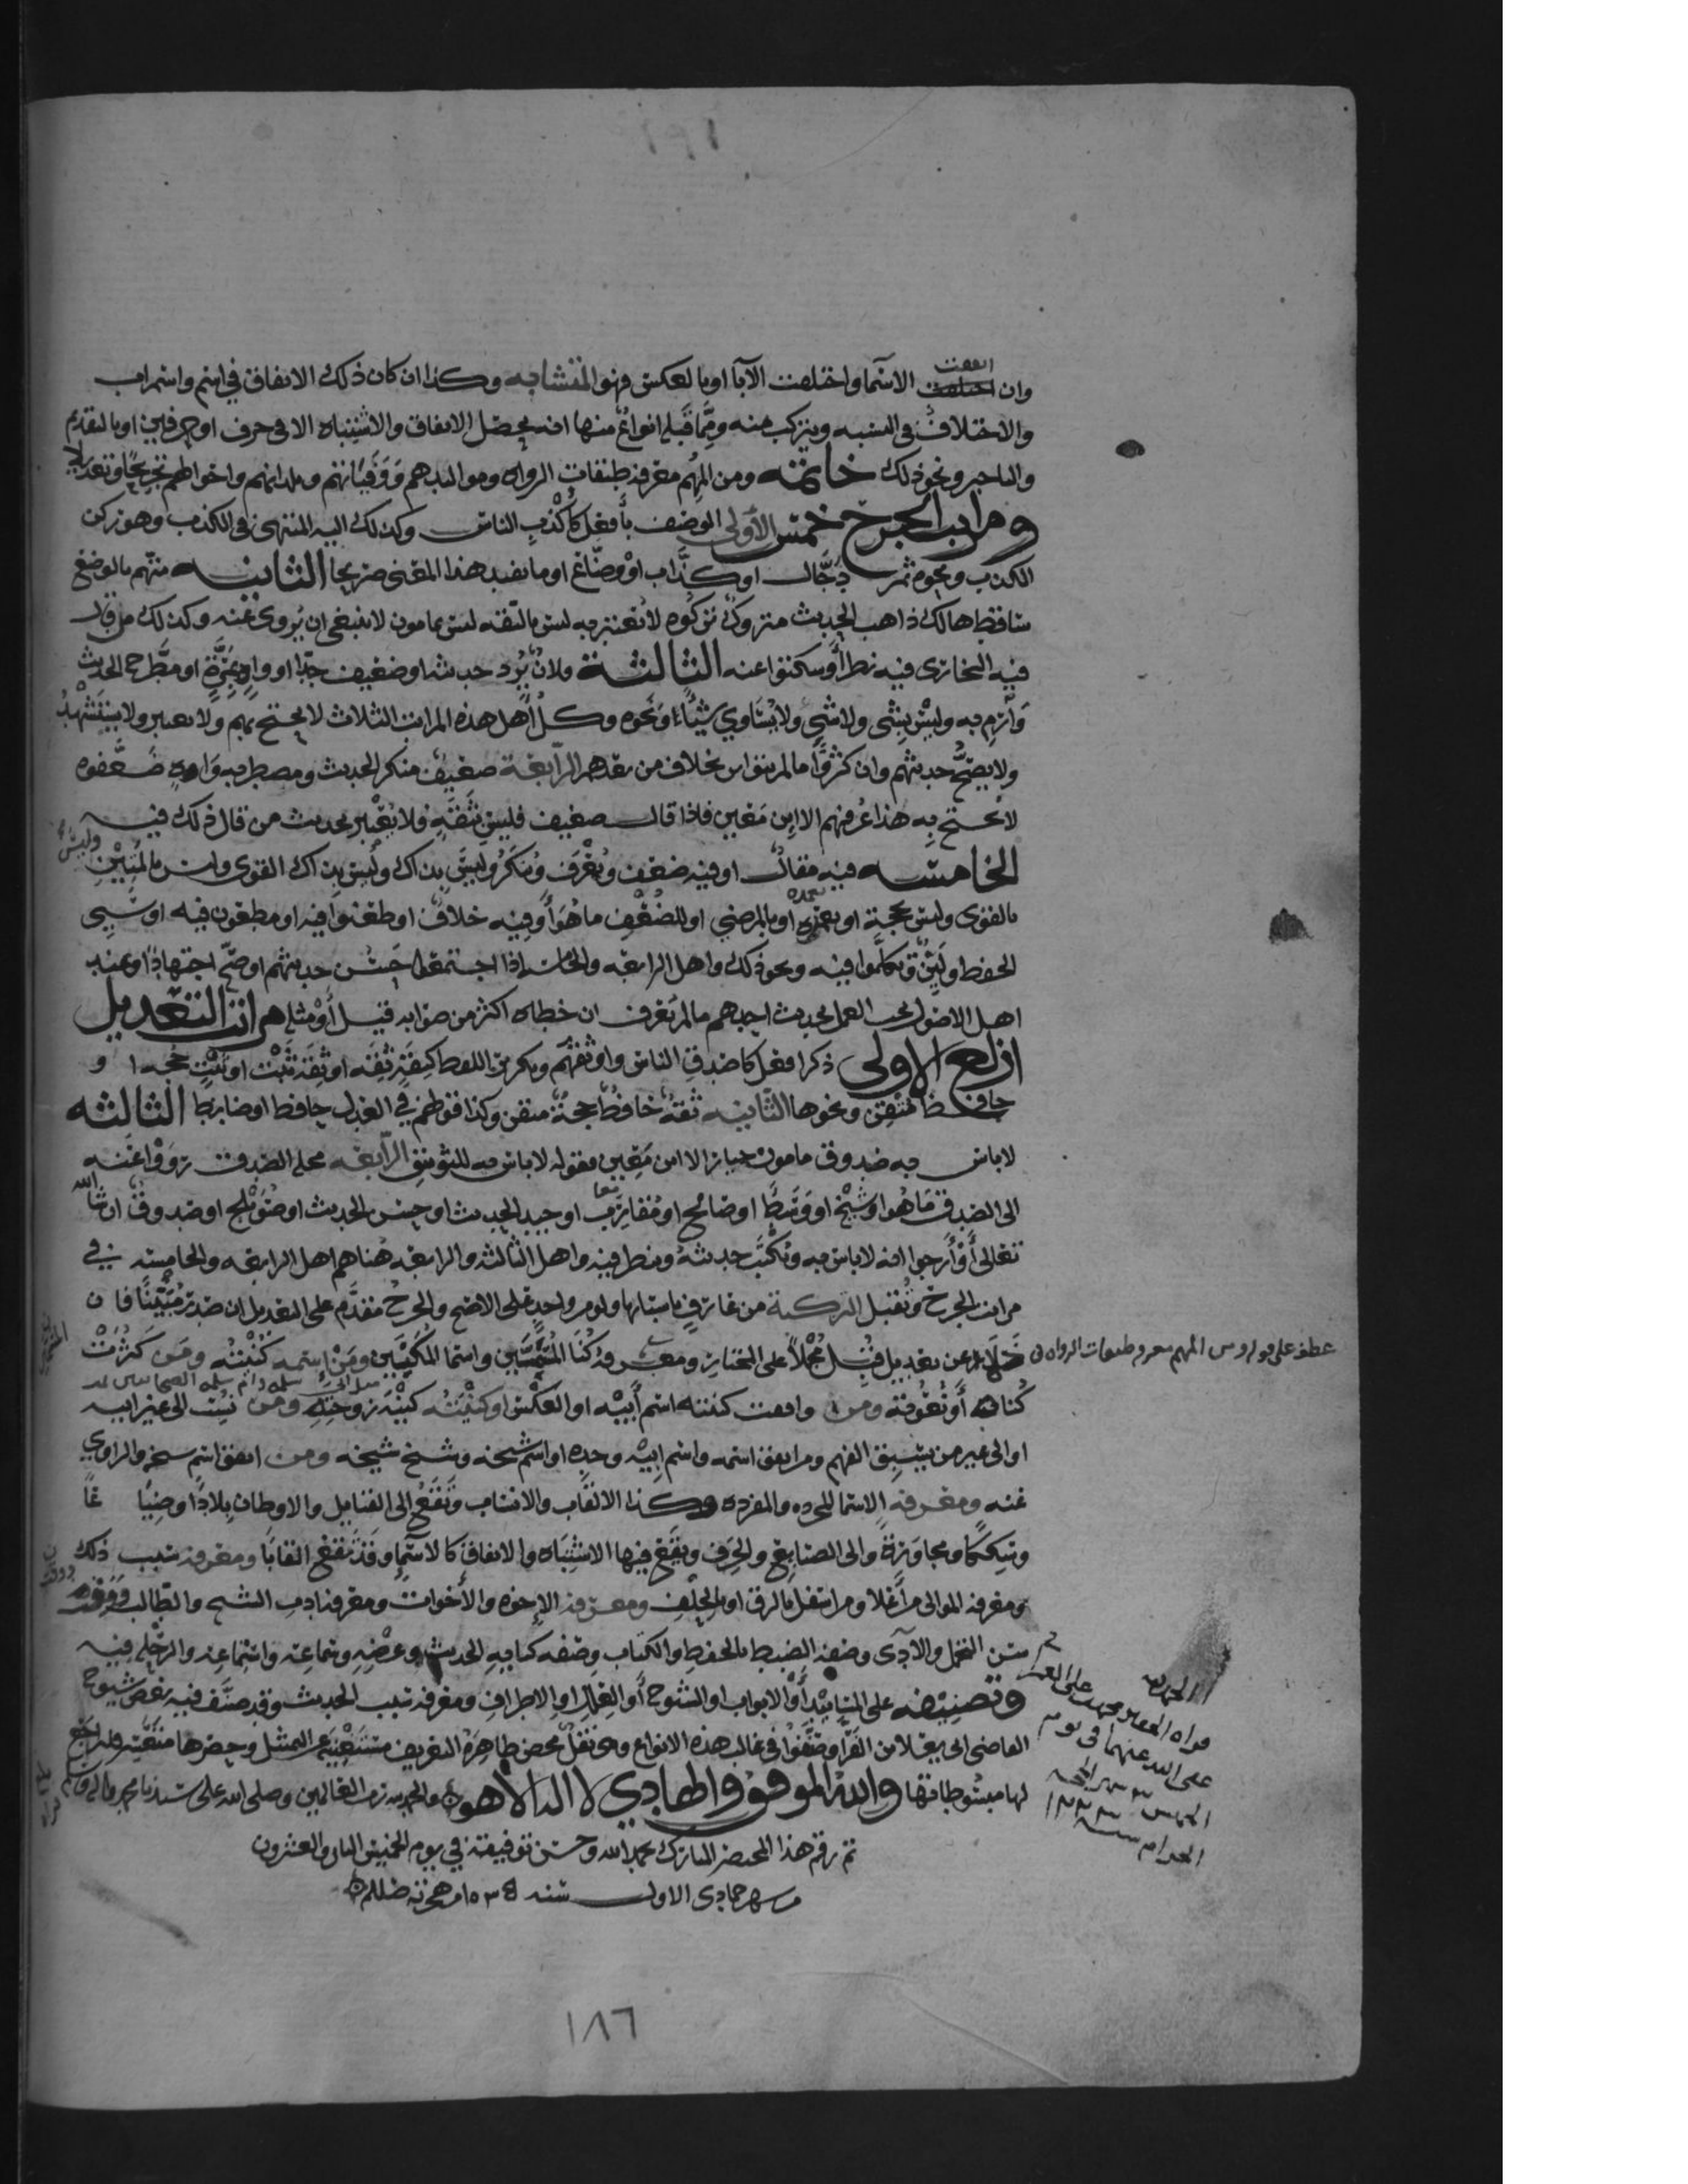 وان اتفقت الاسما واختلفت الآبا او بالعكس فهو المتشابه وكذا ان كان ذلك الاتفاق في اسم واسم اب
والاختلاف في النسبه ويتركب منه ومما قبله انواع منها انه يحصل الاتفاق والاشتباه الا في حرف او حرفين او بالتقديم
والتاخير ونحو ذلك خاتمه ومن المهم معرفة طبقات الرواه ومواليدهم ووفياتهم وبلدانهم واحوالهم تجريحا وتعديلا
ومراتب الجرح خمس الاولى الوصف بأفعل كأكذب الناس وكذلك اليه المنتهى في الكذب وهو ركن
الكذب ونحوه ثم دجال او كذاب او وضاع او ما يفيد هذا المعنى صريحا الثانيه متهم بالوضع
ساقط هالك ذاهب الحديث متروك تركوه لا يعتبر به ليس بالثقه ليس بمامون لا ينبغي ان يروى عنه وكذلك من قال
فيه البخاري فيه نظر أو سكتوا عنه الثالثة فلان رد حديثه او ضعيف جدا او واه بمرة او مطرح الحديث
وارم به وليس بشي ولا شي ولا يساوي شيئا او نحوه وكل اهل هذه المراتب الثلاث لا يحتج بهم ولا يعتبر ولا يستشهد
ولا يصح حديثهم وان كثروا ما لم يتواتر بخلاف من بعدهم الرابعة ضعيف منكر الحديث ومضطربه واه ضعفوه
لا يحتج به هذا عرفهم الا ابن معين فاذا قال ضعيف فليس بثقة فلا يعتبر بحديث من قال ذلك فيه
الخامسه فيه مقال او فيه ضعف ويعرف وينكر وليس بذاك وليس بذاك القوي وليس بالمتين
بالقوى وليس بحجة او بعمده او بالمرضي او للضعف ما هو أو فيه خلاف او طعنوا فيه او مطعون فيه او سيي
الحفظ او لين وتكلموا فيه ونحو ذلك واهل الرابعه والخامسه اذا اجتمعوا حسن حديثهم او صح اجتهادا وعند
اهل الاصول يجب العمل بحديث احدهم ما لم يعرف ان خطاه اكثر من صوابه قيل أو مثله مراتب التعديل
اربع الاولى ذكر افعل كاصدق الناس واوثقهم وتكرير اللفظ كثقة ثقه او ثقة ثبت او ثبت حجه او
حافظ متقن ونحوها الثانيه ثقة حافظ حجة متقن وكذا قولهم في العدل حافظ او ضابط الثالثه
لا باس به صدوق مامون خيار الا ابن معين فقوله لا باس به للتوثيق الرابعه محله الصدق رووا عنه
الى الصدق ما هو او شيخ او وسط او صالح او مقارب او جيد الحديث او حسن الحديث او صويلح او صدوق ان شا الله
تعالى أو أرجوا انه لا باس به ويكتب حديثه وينظر فيه واهل الثالثه والرابعه هنا هم اهل الرابعه والخامسه في
مراتب الجرح وتقبل التزكية من عارف باسبابها ولو من واحد على الاصح والجرح مقدم على التعديل ان صدر مبينا فان
خلا عن تعديل قبل مجملا على المختار ومعرفة كنا المسمين واسما المكنيين ومن اسمه كنيته ومن كثرت
كناه أو نعوته ومن وافقت كنيته اسم أبيه او العكس او كنيته كنية زوجته ومن نسب الى غير ابيه
او الى غير من يسبق الفهم ومن اتفق اسمه واسم ابيه وجده او اسم شيخه وشيخ شيخه ومن اتفق اسم شيخه والراوي
عنه ومعرفة الاسما المجرده والمفرده وكذا الالقاب والانساب وتقع الى القبايل والاوطان بلادا وضيا عا
وسككا ومجاورة والى الصنايع والحرف ويقع فيها الاشتباه والاتفاق كالاسما وقد تقع القابا ومعرفة سبب ذلك
ومعرفة الموالى من أعلا ومن اسفل بالرق او بالحلف ومعرفة الاخوه والأخوات ومعرفة ادب الشيخ والطالب
سن التحمل والادى وصفة الضبط بالحفظ والكتاب وصفه كتابه الحديث وعرضه وسماعه واسماعه والرحله فيه
وتصنيفه على المسانيد أو الابواب او الشيوخ أو العلل او الاطراف ومعرفة سبب الحديث وقد صنف فيه بعض شيوخ
القاضي ابي يعلا بن الفرا وصنفوا في غالب هذه الانواع وهي نقل محض ظاهرة التعريف مستغنيه عن التمثيل وحصرها متعسر فليراجع
لها مبسوطاتها والله الموفق والهادي لا اله الا هو والحمد لله رب العالمين وصلى الله على سيدنا محمد واله وسلم
تم رقم هذا المختصر المبارك بحمد الله وحسن توفيقه في يوم الخميس الثاني والعشرون
من شهر جمادى الاولى سنه
عطف على قوله ومن المهم معرفة طبقات الرواه
الحمد لله
١٨٦